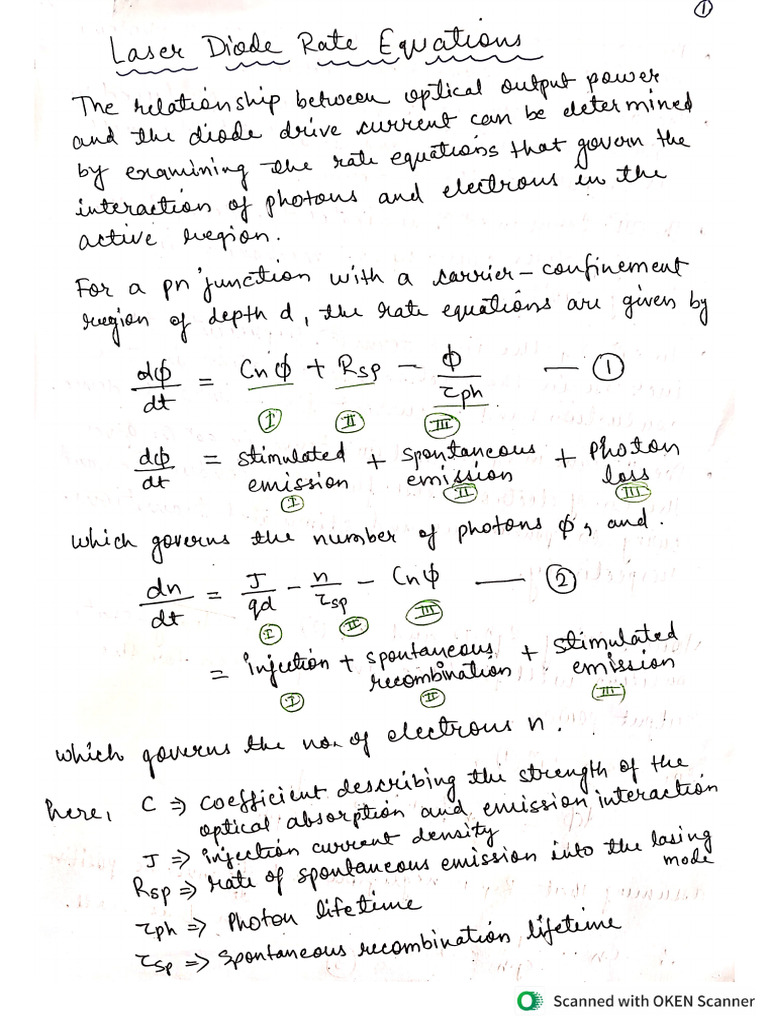 ①
Laser Diode Rate Equations
The relationship between optical output power
and the diode drive current can be determined
by examining the rate equations that govern the
interaction of photons and electrons in the
active region.
For a pn junction with a carrier-confinement
region of depth d, the rate equations are given by
dϕ/dt = Cnϕ + Rsp − ϕ/τph — ①
Ⓘ Ⓘⓘ Ⓘⓘⓘ
dϕ/dt = stimulated emission + spontaneous emission + photon loss
I II III
which governs the number of photons ϕ, and.
dn/dt = J/qd − n/τsp − Cnϕ — ②
I II III
= injection + spontaneous recombination + stimulated emission
I II III
which governs the no. of electrons n.
here, C ⇒ coefficient describing the strength of the
optical absorption and emission interaction
J ⇒ injection current density
Rsp ⇒ rate of spontaneous emission into the lasing
mode
τph ⇒ Photon lifetime
τsp ⇒ spontaneous recombination lifetime
Scanned with OKEN Scanner